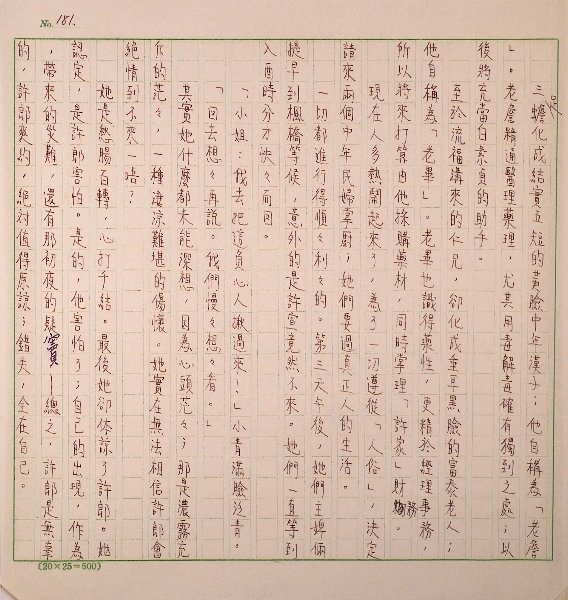 No. 181.
三蟾化成結實五短的黃臉中年漢子;他自稱為「老詹
」。老詹精通醫理藥理,尤其用毒解毒確有獨到之處;以
後將充當白素貞的助手。
至於流福溝來的仁兄,卻化成重耳黑臉的富泰老人;
他自稱為「老畢」。老畢也識得藥性,更精於經理事務,
所以將來打算由他採購藥材,同時掌理「許家」財務。
現在人多熱鬧起來了,為了一切遵從「人俗」,決定
請來兩個中年民婦掌廚;她們要過真正人的生活。
一切都進行得順々利々的。第三天午後,她們主婢倆
提早到楓橋等候,意外的是許宣竟然不來。她們一直等到
入酉時分才怏々而回。
「小姐:我去把這負心人揪過來!」小青滿臉泛青。
「回去想々再說。我們慢々想々看。」
其實她什麼都未能深想,因為心頭茫々;那是濃霧充
斥的茫々,一種淒涼難堪的傷懷。她實在無法相信許郎會
絕情到不來一晤?
她是愁腸百轉,心打千結。最後她卻体諒了許郎。她
認定,是許郎害怕。是的,他害怕了;自己的出現,作為
,帶來的災難,還有那初夜的疑竇──總之,許郎是無辜
的,許郎爽約,絕對值得原諒;錯失,全在自己。
(20×25=500)